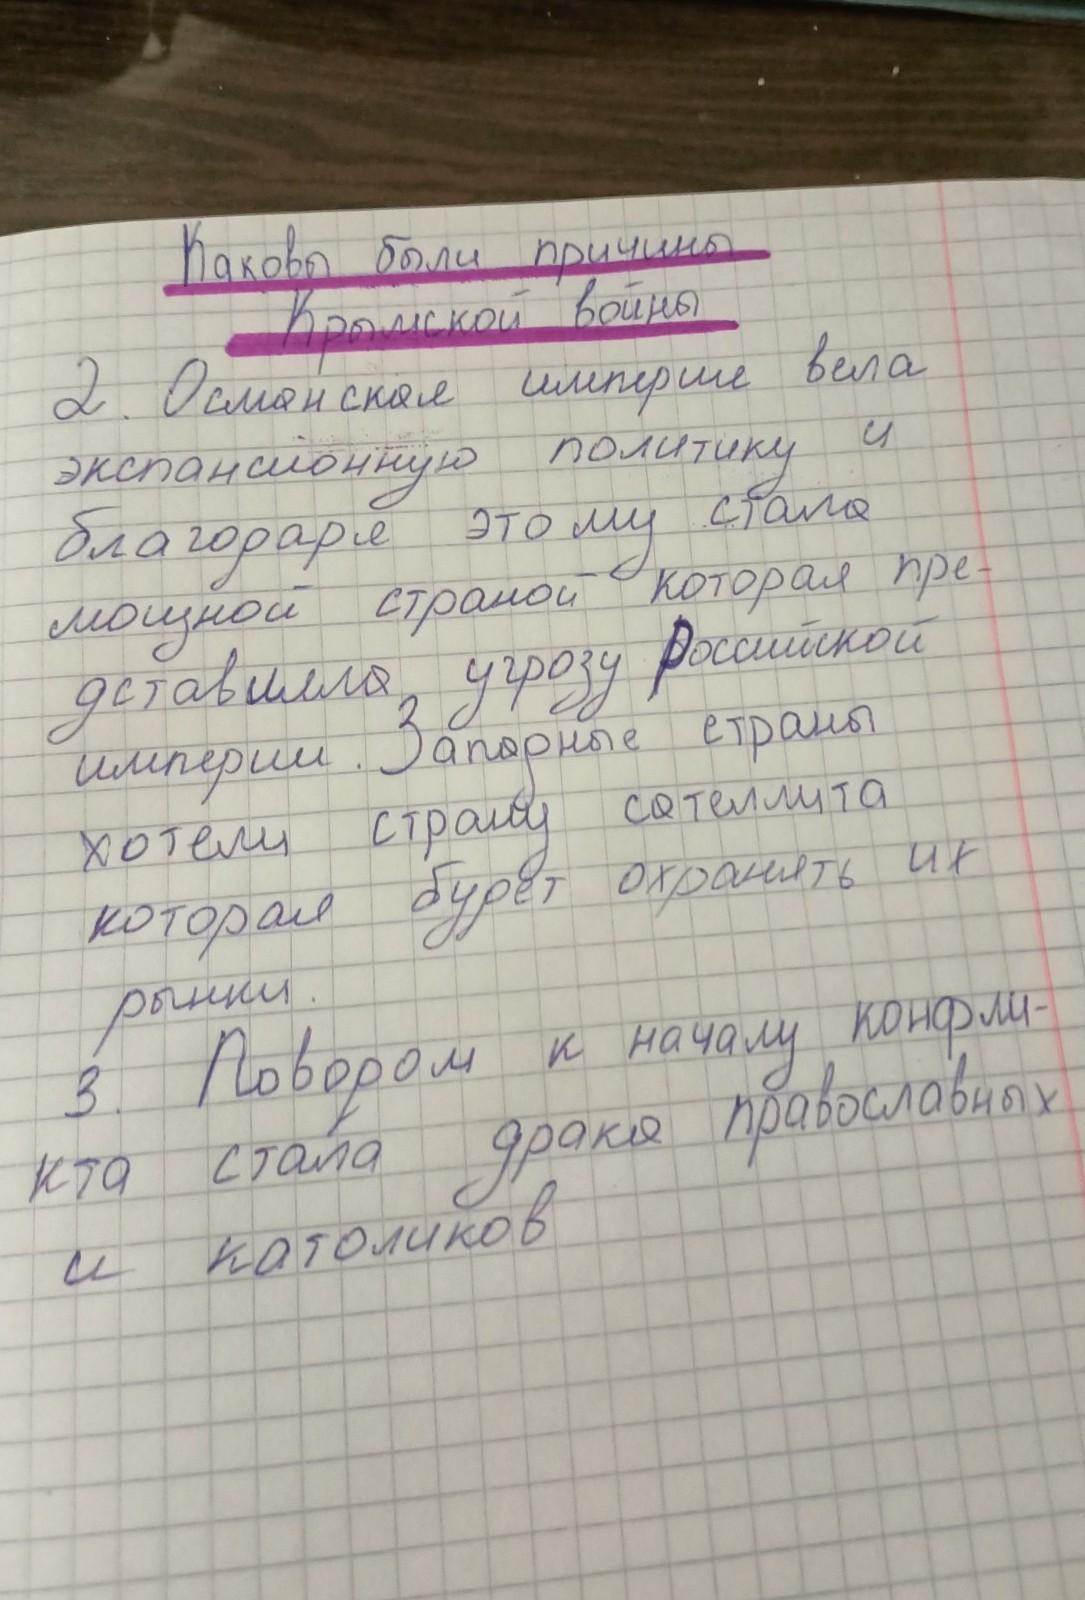 Каковы были причины
Крымской войны
2. Османская империя вела
экспансионную политику и
благодаря этому стала
мощной страной которая пре-
дставляла угрозу Российской
империи. Западные страны
хотели страну сателлита
которая будет охранять их
рынки.
3. Поводом к началу конфли-
кта стала драка православных
и католиков